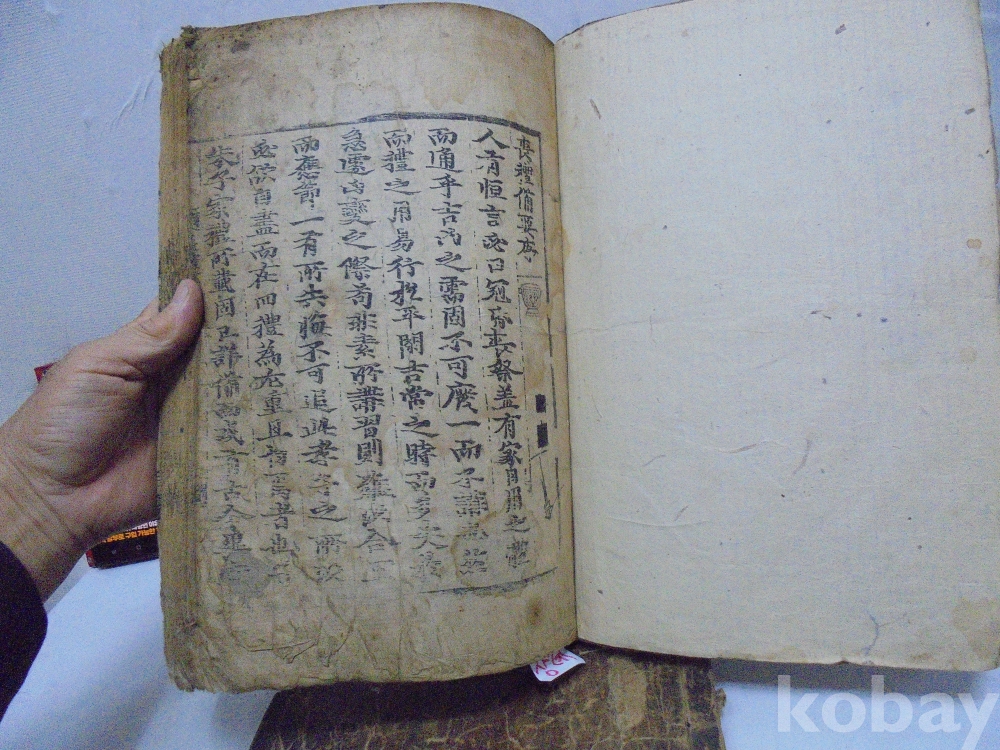 喪禮備要序
人有恒言必曰冠昏喪祭盖有家日用之體
而通乎吉凶之需固不可廢一而不講也然
而禮之用易行於平閑吉常之時而多失於
急遽凶變之際苟非素所講習則難以合宜
而應節一有所失悔不可追此孝子之所以
必欲自盡而在四禮為尤重且切焉者也
朱子家禮所載固已詳備而或有古今
kobay